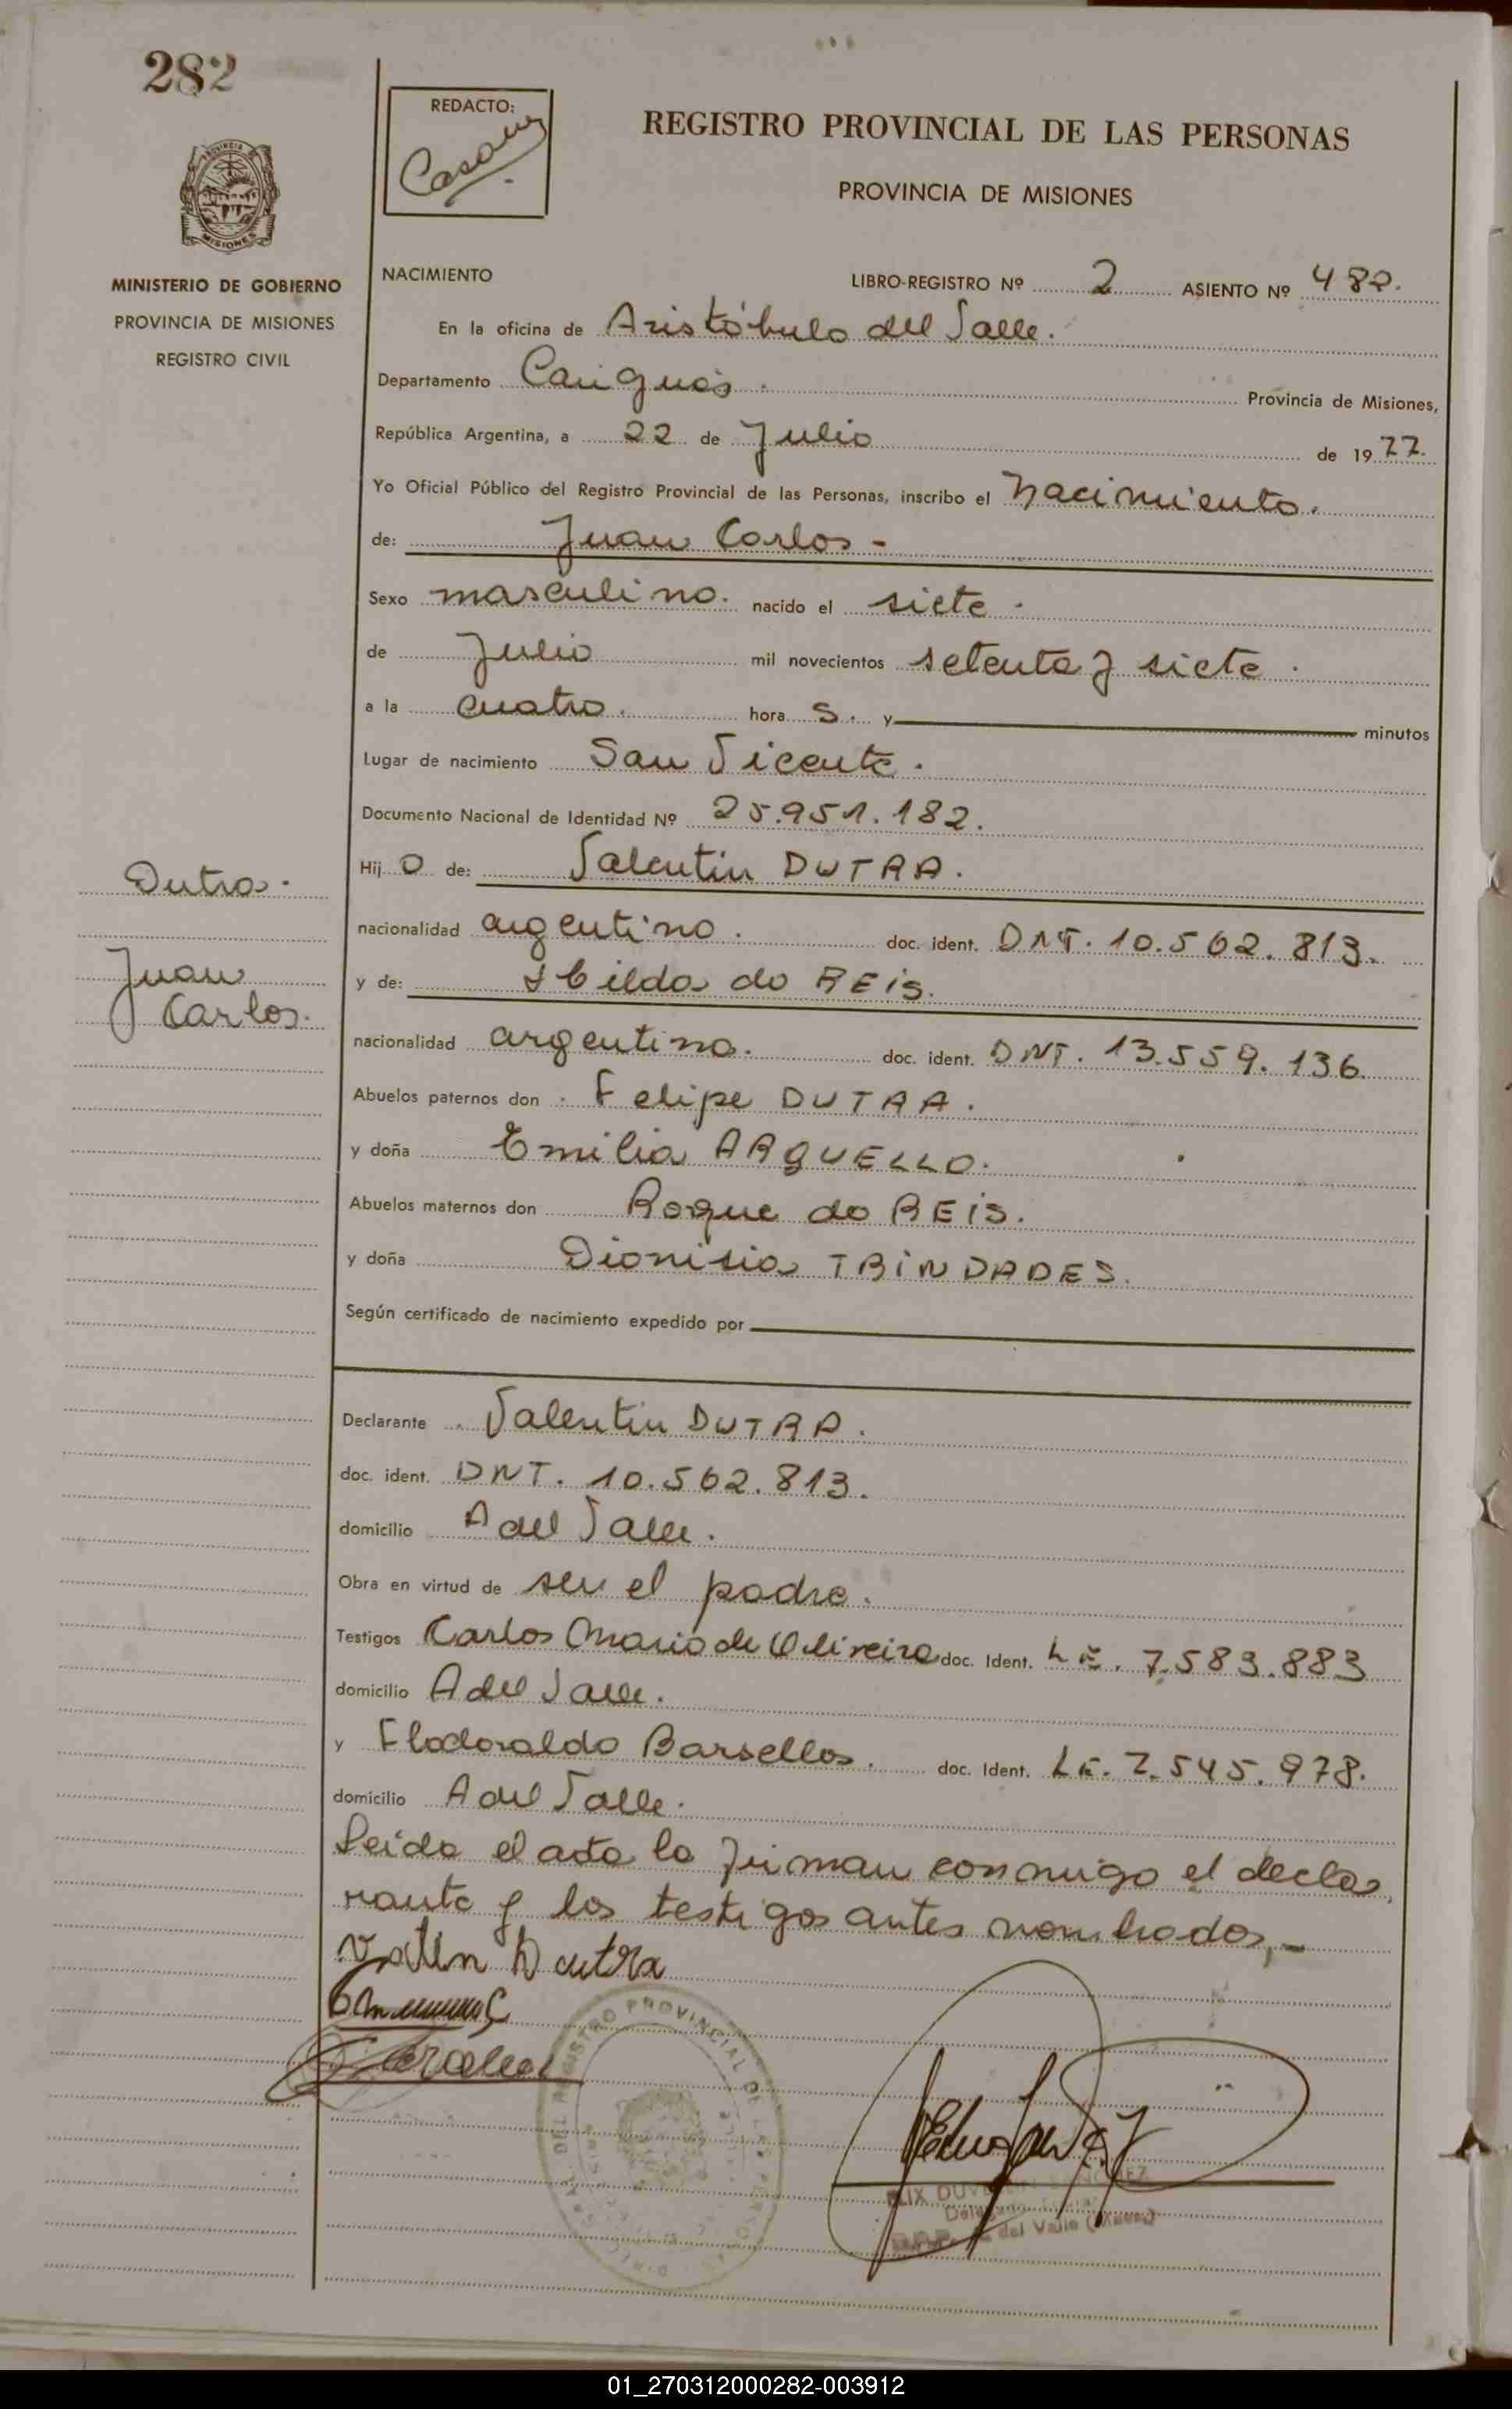 282
REDACTO:
REGISTRO PROVINCIAL DE LAS PERSONAS
PROVINCIA DE MISIONES
MISIONES
MINISTERIO DE GOBIERNO
PROVINCIA DE MISIONES
REGISTRO CIVIL
NACIMIENTO LIBRO-REGISTRO Nº 2 ASIENTO Nº 482.
En la oficina de Aristóbulo del Valle.
Departamento Cainguás. Provincia de Misiones,
República Argentina, a 22 de Julio de 1977.
Yo Oficial Público del Registro Provincial de las Personas, inscribo el nacimiento.
de: Juan Carlos -
Sexo masculino. nacido el siete.
de Julio mil novecientos setenta y siete.
a la cuatro. hora s. y minutos
Lugar de nacimiento San Vicente.
Documento Nacional de Identidad Nº 25.951.182.
Hij o de: Valentin DUTRA.
nacionalidad argentino. doc. ident. DNI. 10.562.813.
y de: Hilda do REIS.
nacionalidad argentina. doc. ident. DNI. 13.559.136.
Abuelos paternos don Felipe DUTRA.
y doña Emilia ARGUELLO.
Abuelos maternos don Roque do REIS.
y doña Dionisia TRINDADES.
Según certificado de nacimiento expedido por
Dutra.
Juan
Carlos.
Declarante Valentin DUTRA.
doc. ident. DNI. 10.562.813.
domicilio A del Valle.
Obra en virtud de ser el padre.
Testigos Carlos Mario de Oliveira doc. Ident. LE. 7.583.883
domicilio A del Valle.
y Flodoraldo Barsellos. doc. Ident. LE. 7.545.978.
domicilio A del Valle.
Leida el acta la firman conmigo el decla
rante y los testigos antes nombrados,-
Valtin Dutra
REGISTRO PROVINCIAL DE LAS PERSONAS
del Valle
01_270312000282-003912